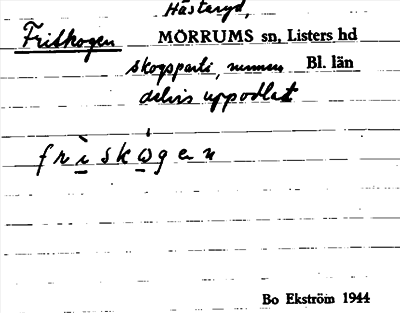 Hästaryd,
Friskogen MÖRRUMS sn, Listers hd
skogsparti, numera Bl. län
delvis uppodlat
frìskógen
Bo Ekström 1944